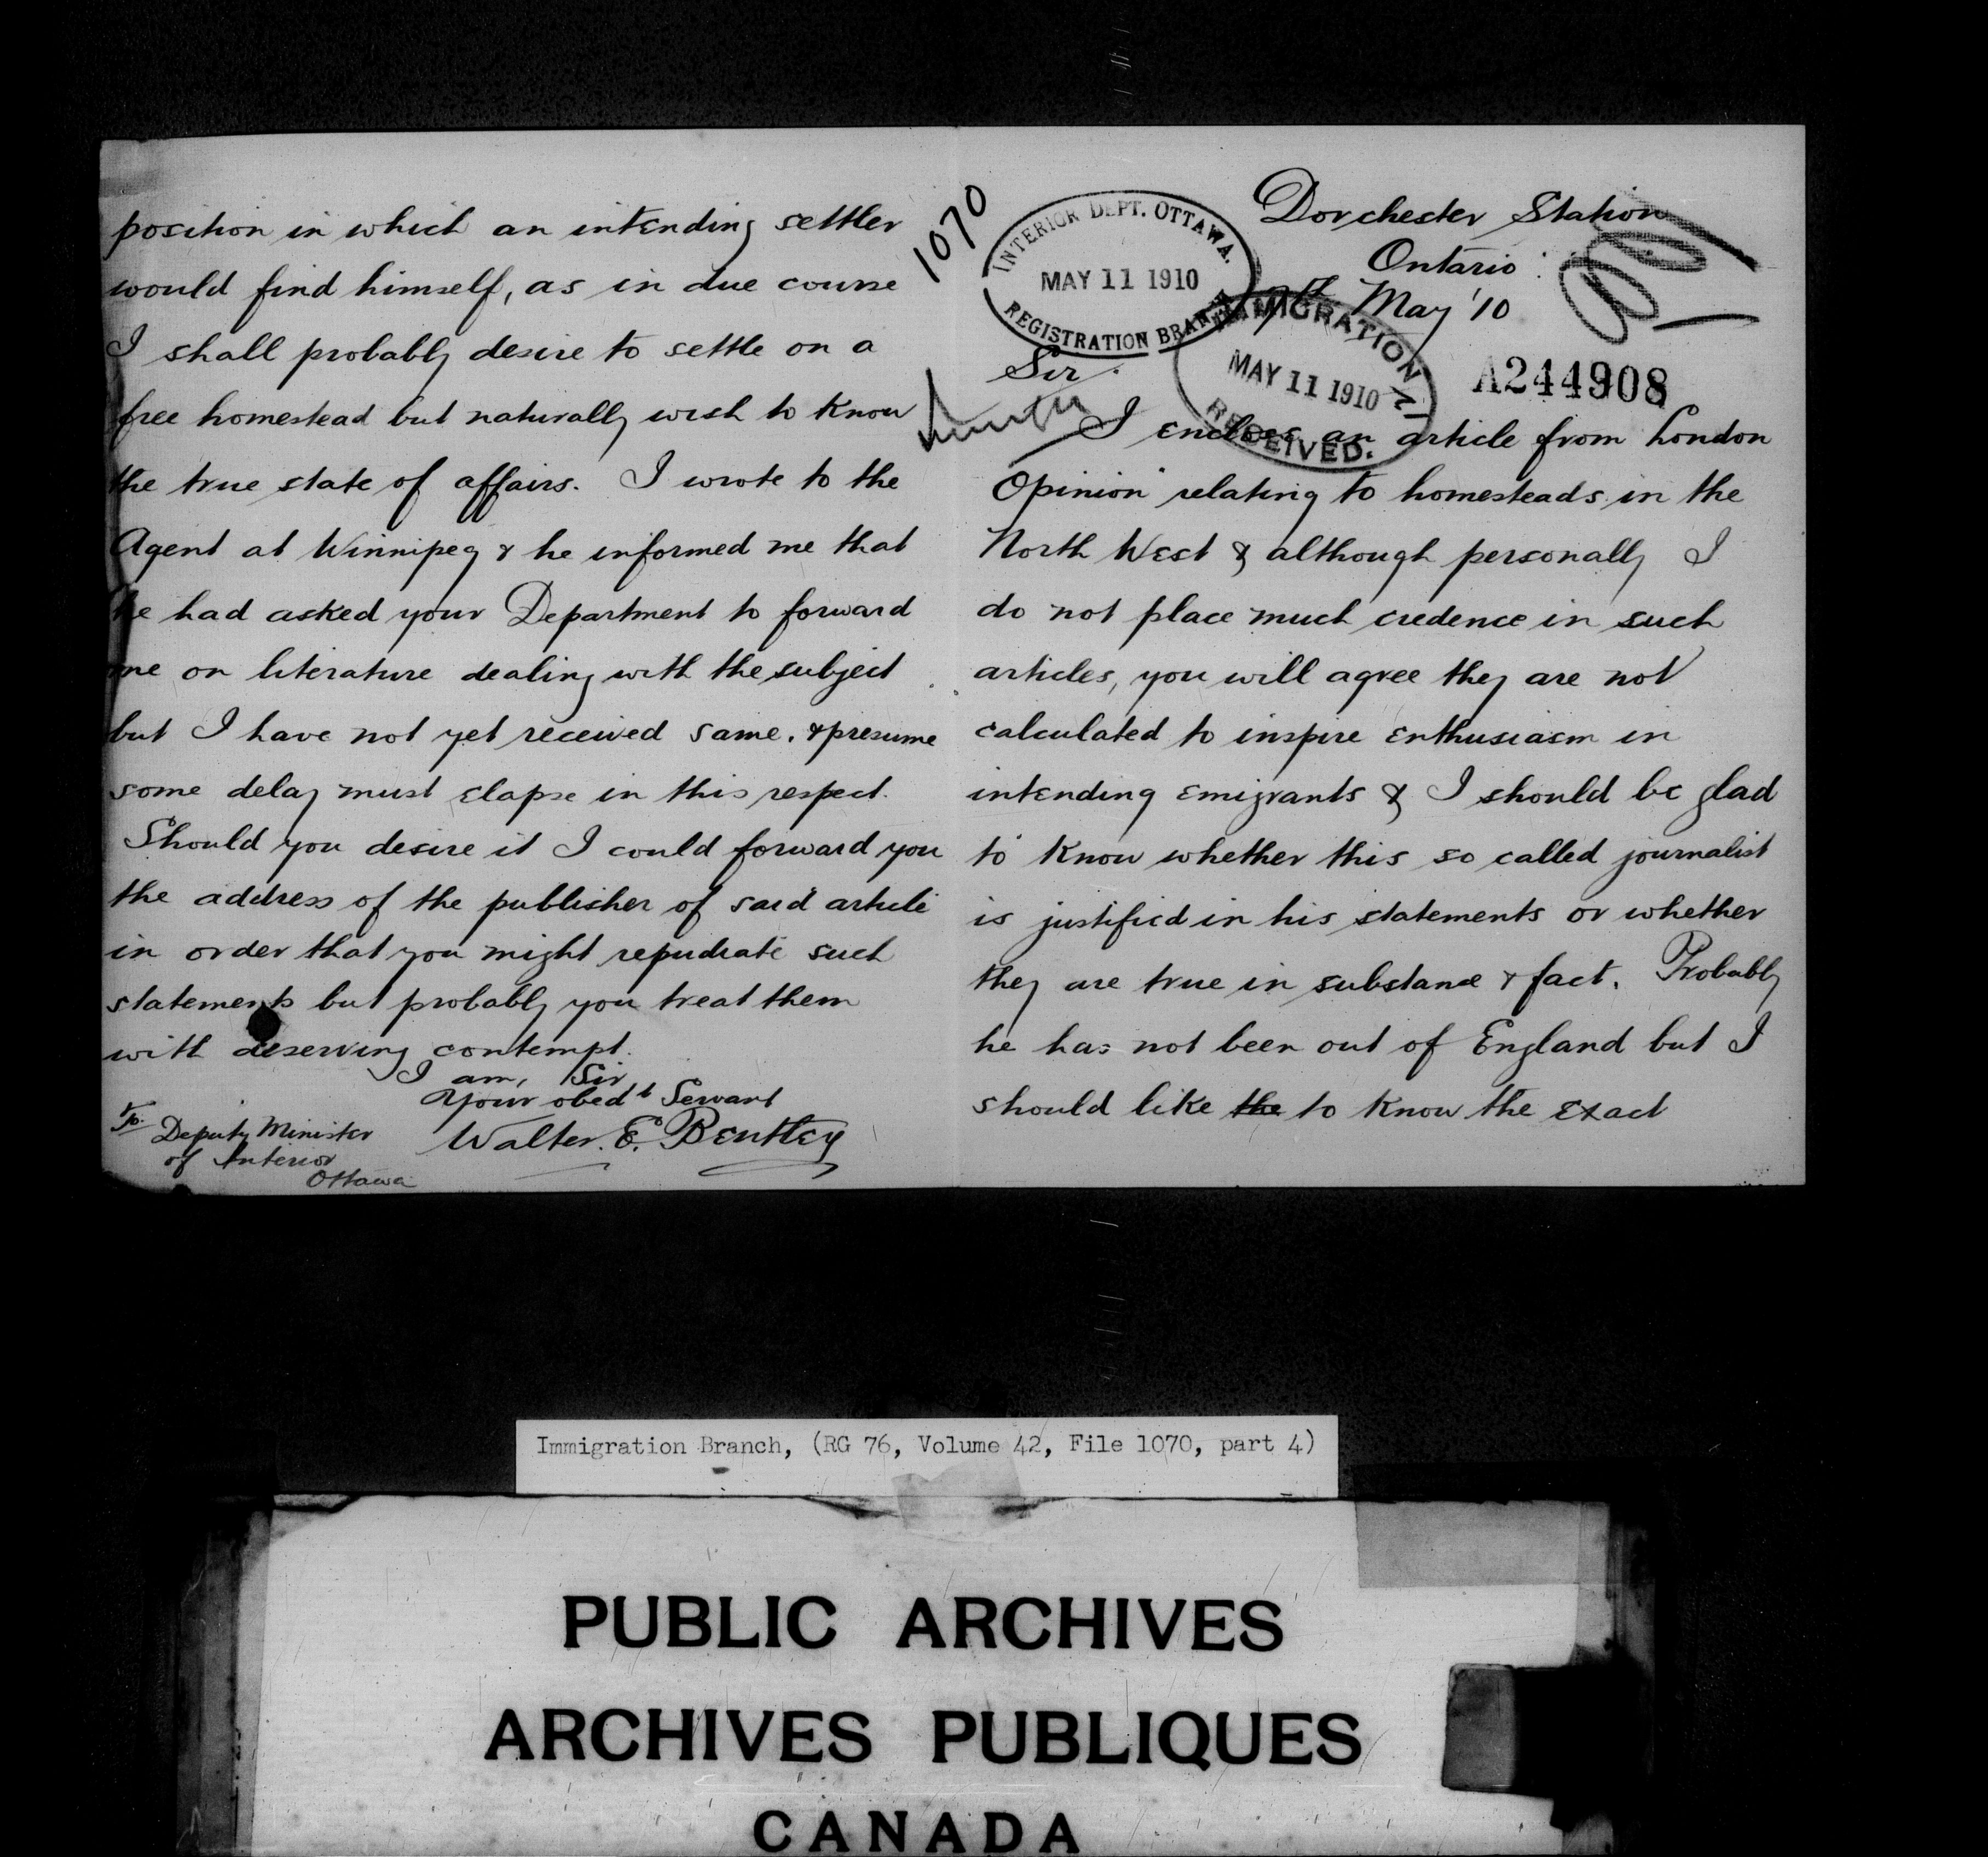 Dorchester Station
Ontario
May '10
1070
INTERIOR DEPT. OTTAWA.
MAY 11 1910
REGISTRATION BRANCH
IMMIGRATION
MAY 11 1910
RECEIVED.
A244908
Sir
I enclose an article from London
Opinion relating to homesteads in the
North West & although personally I
do not place much credence in such
articles, you will agree they are not
calculated to inspire enthusiasm in
intending emigrants & I should be glad
to know whether this so called journalist
is justified in his statements or whether
they are true in substance & fact. Probably
he has not been out of England but I
should like the to know the exact
position in which an intending settler
would find himself, as in due course
I shall probably desire to settle on a
free homestead but naturally wish to know
the true state of affairs. I wrote to the
Agent at Winnipeg & he informed me that
he had asked your Department to forward
me on literature dealing with the subject
but I have not yet received same. & presume
some delay must elapse in this respect.
Should you desire it I could forward you
the address of the publisher of said article
in order that you might repudiate such
statements but probably you treat them
with deserving contempt.
I am, Sir
Your obedt Servant
Walter. E. Bentley
To.
Deputy Minister
of Interior
Ottawa
Immigration Branch, (RG 76, Volume 42, File 1070, part 4)
PUBLIC ARCHIVES
ARCHIVES PUBLIQUES
CANADA